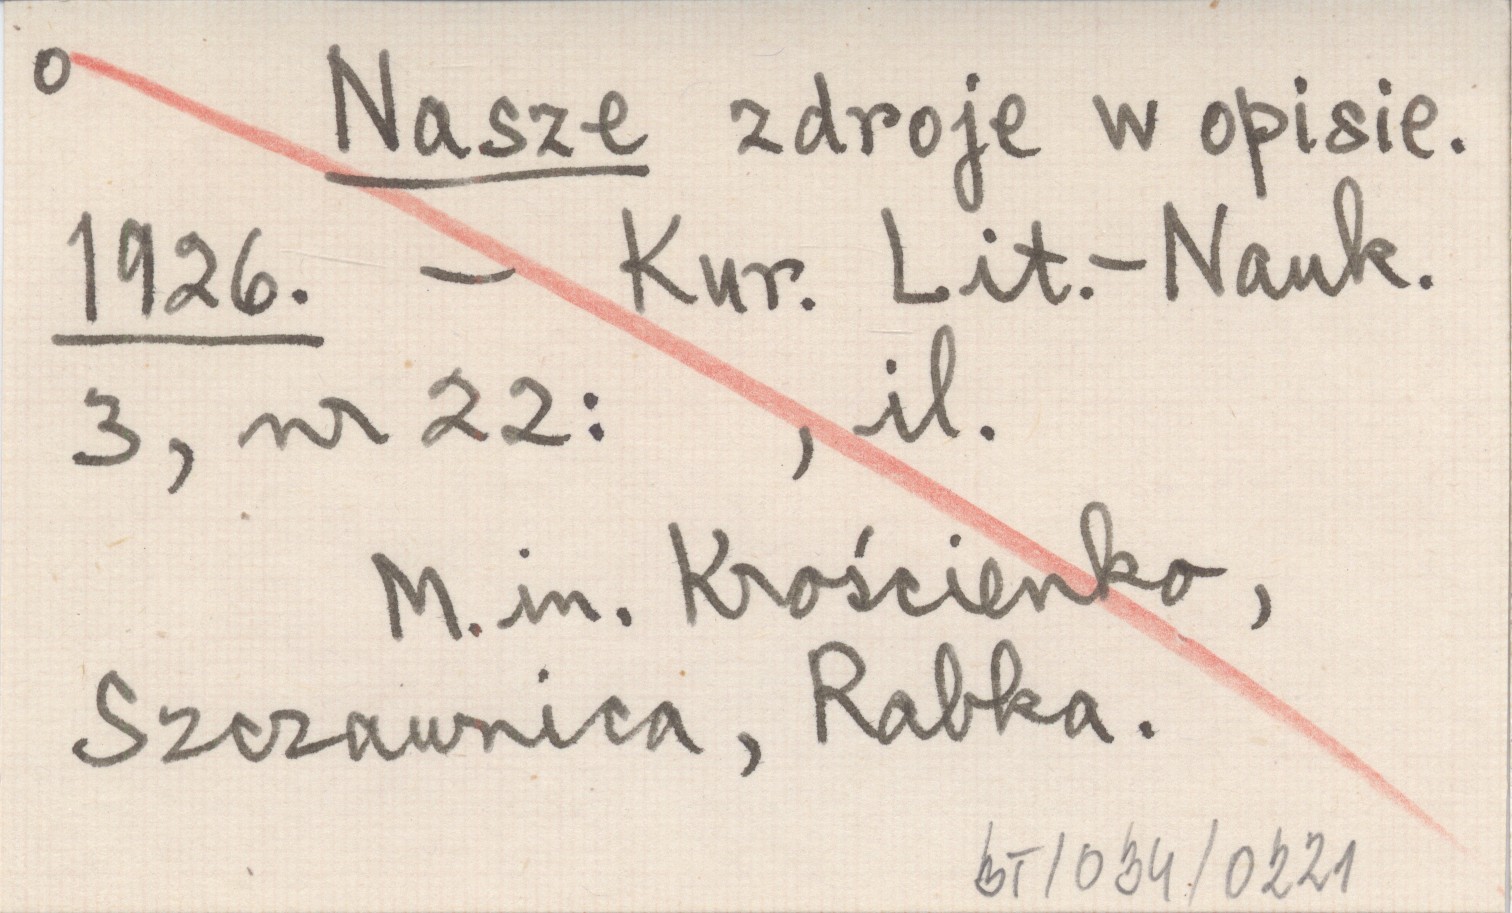 o Nasze zdroje w opisie.
1926. - Kur. Lit.-Nauk.
3, nr 22: , il.
M. in. Krościenko,
Szczawnica, Rabka.
BT/034/0221